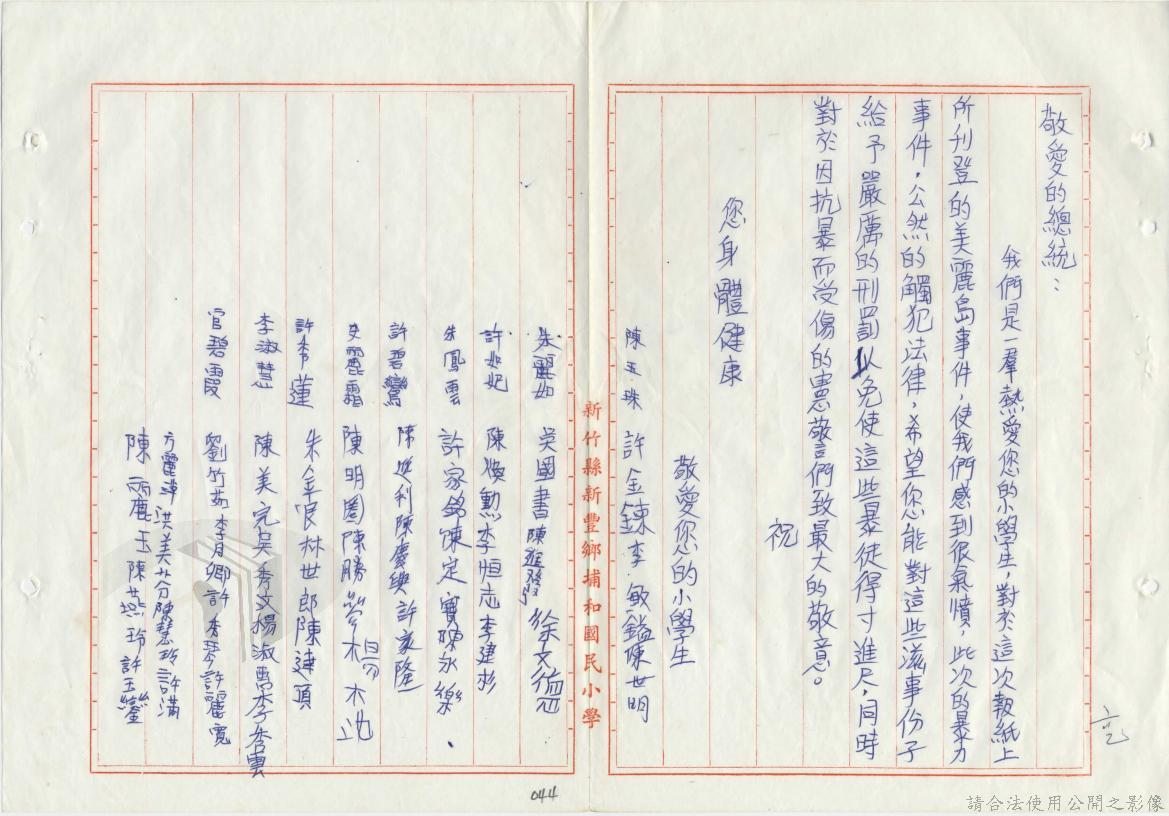 敬愛的總統：
我們是一羣熱愛您的小學生，對於這次報紙上
所刊登的美麗島事件，使我們感到很氣憤，此次的暴力
事件，公然的觸犯法律，希望您能對這些滋事份子
給予嚴厲的刑罰以免使這些暴徒得寸進尺，同時
對於因抗暴而受傷的憲警們致最大的敬意。
祝
您身體健康
敬愛您的小學生
陳玉珠 許金鍊 李敏鎰 陳世明
新竹縣新豐鄉埔和國民小學
朱麗如 吳國書 陳進發 徐文德
許如妃 陳煥勲 李恒志 李建杉
朱鳳雲 許家銘 陳定寶 陳永樂
許碧鸞 陳進利 陳慶興 許家隆
麗霜 陳明園 陳勝 楊木
許季蓮 朱金 林世郎 陳連頂
李淑慧 陳美完 吳秀汶 楊淑 李秀雲
官碧霞 劉竹茹 李月卿 許秀琴 許麗寬
方麗萍 洪美芬 陳慧玲 許滿
陳麗玉 陳燕玲 許玉鑾
044
請合法使用公開之影像